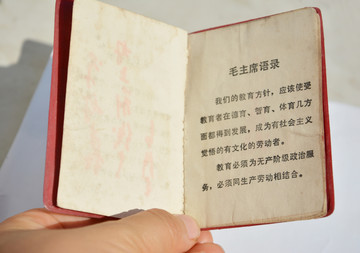 毛主席语录
我们的教育方针，应该使受
教育者在德育、智育、体育几方
面都得到发展，成为有社会主义
觉悟的有文化的劳动者。
教育必须为无产阶级政治服
务，必须同生产劳动相结合。